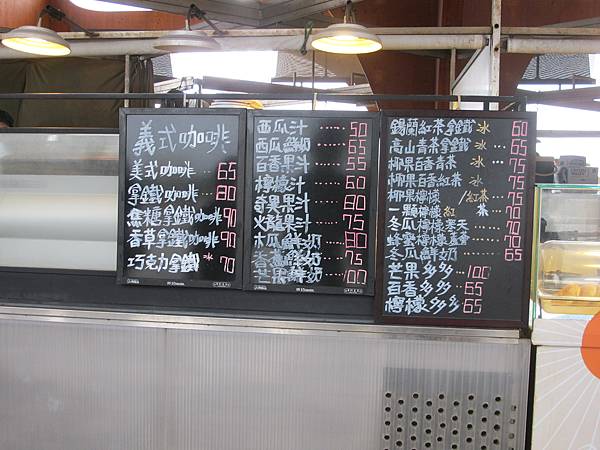 義式咖啡
美式咖啡 65
拿鐵咖啡 80
焦糖拿鐵咖啡 90
香草拿鐵咖啡 90
巧克力拿鐵 冰 70
西瓜汁 50
西瓜鮮奶 65
百香果汁 55
檸檬汁 60
奇異果汁 80
火龍果汁 75
木瓜鮮奶 80
酪梨鮮奶 75
芒果鮮奶 100
錫蘭紅茶拿鐵 冰 60
高山青茶拿鐵 冰 65
柳果百香青茶 75
柳果百香紅茶 75
柳果檸檬 /紅茶 75
一顆檸檬紅茶 70
冬瓜檸檬寒天 70
蜂蜜檸檬蘆薈 70
冬瓜鮮奶 65
芒果多多 100
百香多多 65
檸檬多多 65